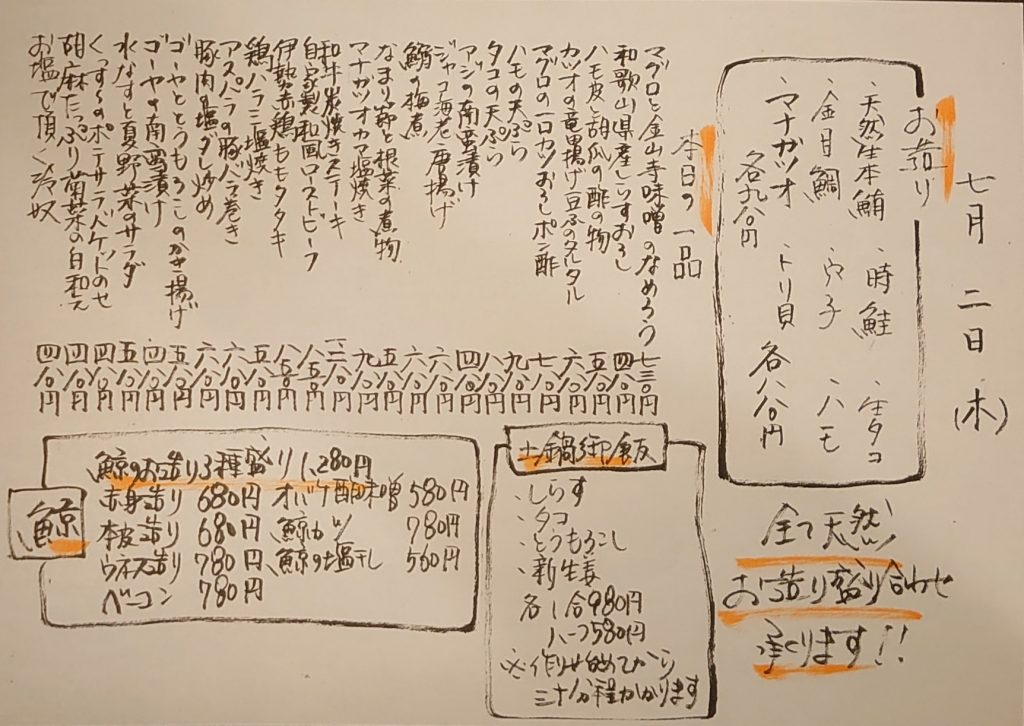 七月二日(木)
お造り
・天然生本鮪 ・時鮭 ・生タコ
・金目鯛 ・穴子 ・ハモ
・マナガツオ ・トリ貝
各九八〇円 各八八〇円
全て天然
お造り盛り合わせ
承ります!!
本日の一品
マグロと金山寺味噌のなめろう 七三〇円
和歌山県産しらすおろし 四八〇円
ハモ皮と胡瓜の酢の物 五八〇円
カツオの竜田揚げ豆ふのタルタル 六八〇円
マグロの一口カツおろしポン酢 七八〇円
ハモの天ぷら 九八〇円
タコの天ぷら 八八〇円
アジの南蛮漬け 四八〇円
ジャコ海老唐揚げ 六八〇円
鰯の梅煮 六八〇円
なまり節と根菜の煮物 五八〇円
マナガツオカマ塩焼き 九八〇円
和牛炭焼きステーキ 一、二八〇円
自家製和風ローストビーフ 八五〇円
伊勢赤鶏ももタタキ 八五〇円
鶏ハラミ塩焼き 五八〇円
アスパラの豚バラ巻き 六八〇円
豚肉の塩ダレ炒め 六八〇円
ゴーヤととうもろこしのかき揚げ 五八〇円
ゴーヤの南蛮漬け 四八〇円
水なすと夏野菜のサラダ 五八〇円
くっす〜のポテサラバケットのせ 四八〇円
胡麻たっぷり菊菜の白和え 四八〇円
お塩で頂く冷奴 四八〇円
土鍋御飯
・しらす
・タコ
・とうもろこし
・新生姜
各1合980円
ハーフ580円
※作り始めてから
三十分程かかります
鯨
鯨のお造り3種盛り 1,280円
赤身造り 680円 オバケ酢味噌 580円
本皮造り 680円 鯨カツ 780円
ウネス造り 780円 鯨の塩干し 560円
ベーコン 780円